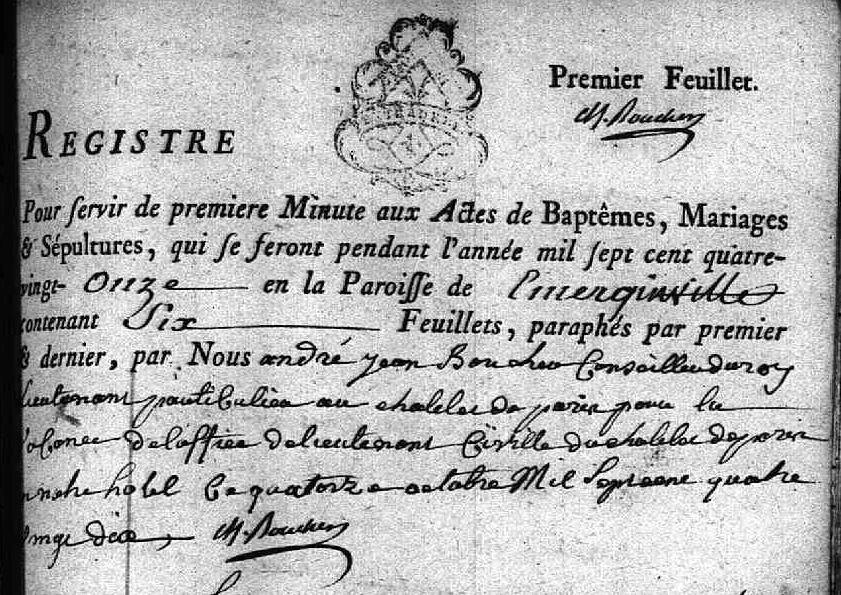 Premier Feuillet.
A. J. Boucher
REGISTRE
Pour servir de premiere Minute aux Actes de Baptêmes, Mariages
& Sépultures, qui se feront pendant l'année mil sept cent quatre-
vingt- Onze en la Paroisse de Emerginville
contenant Six Feuillets, paraphés par premier
& dernier, par Nous andré jean Boucher Conseiller du roy
lieutenant particulier au chatelet de paris pour la
vacance de l'office de lieutenant Civille du chatelet de paris
en notre hotel Ce quatorze octobre Mil Sept cent quatre
vingt dix
A. J. Boucher